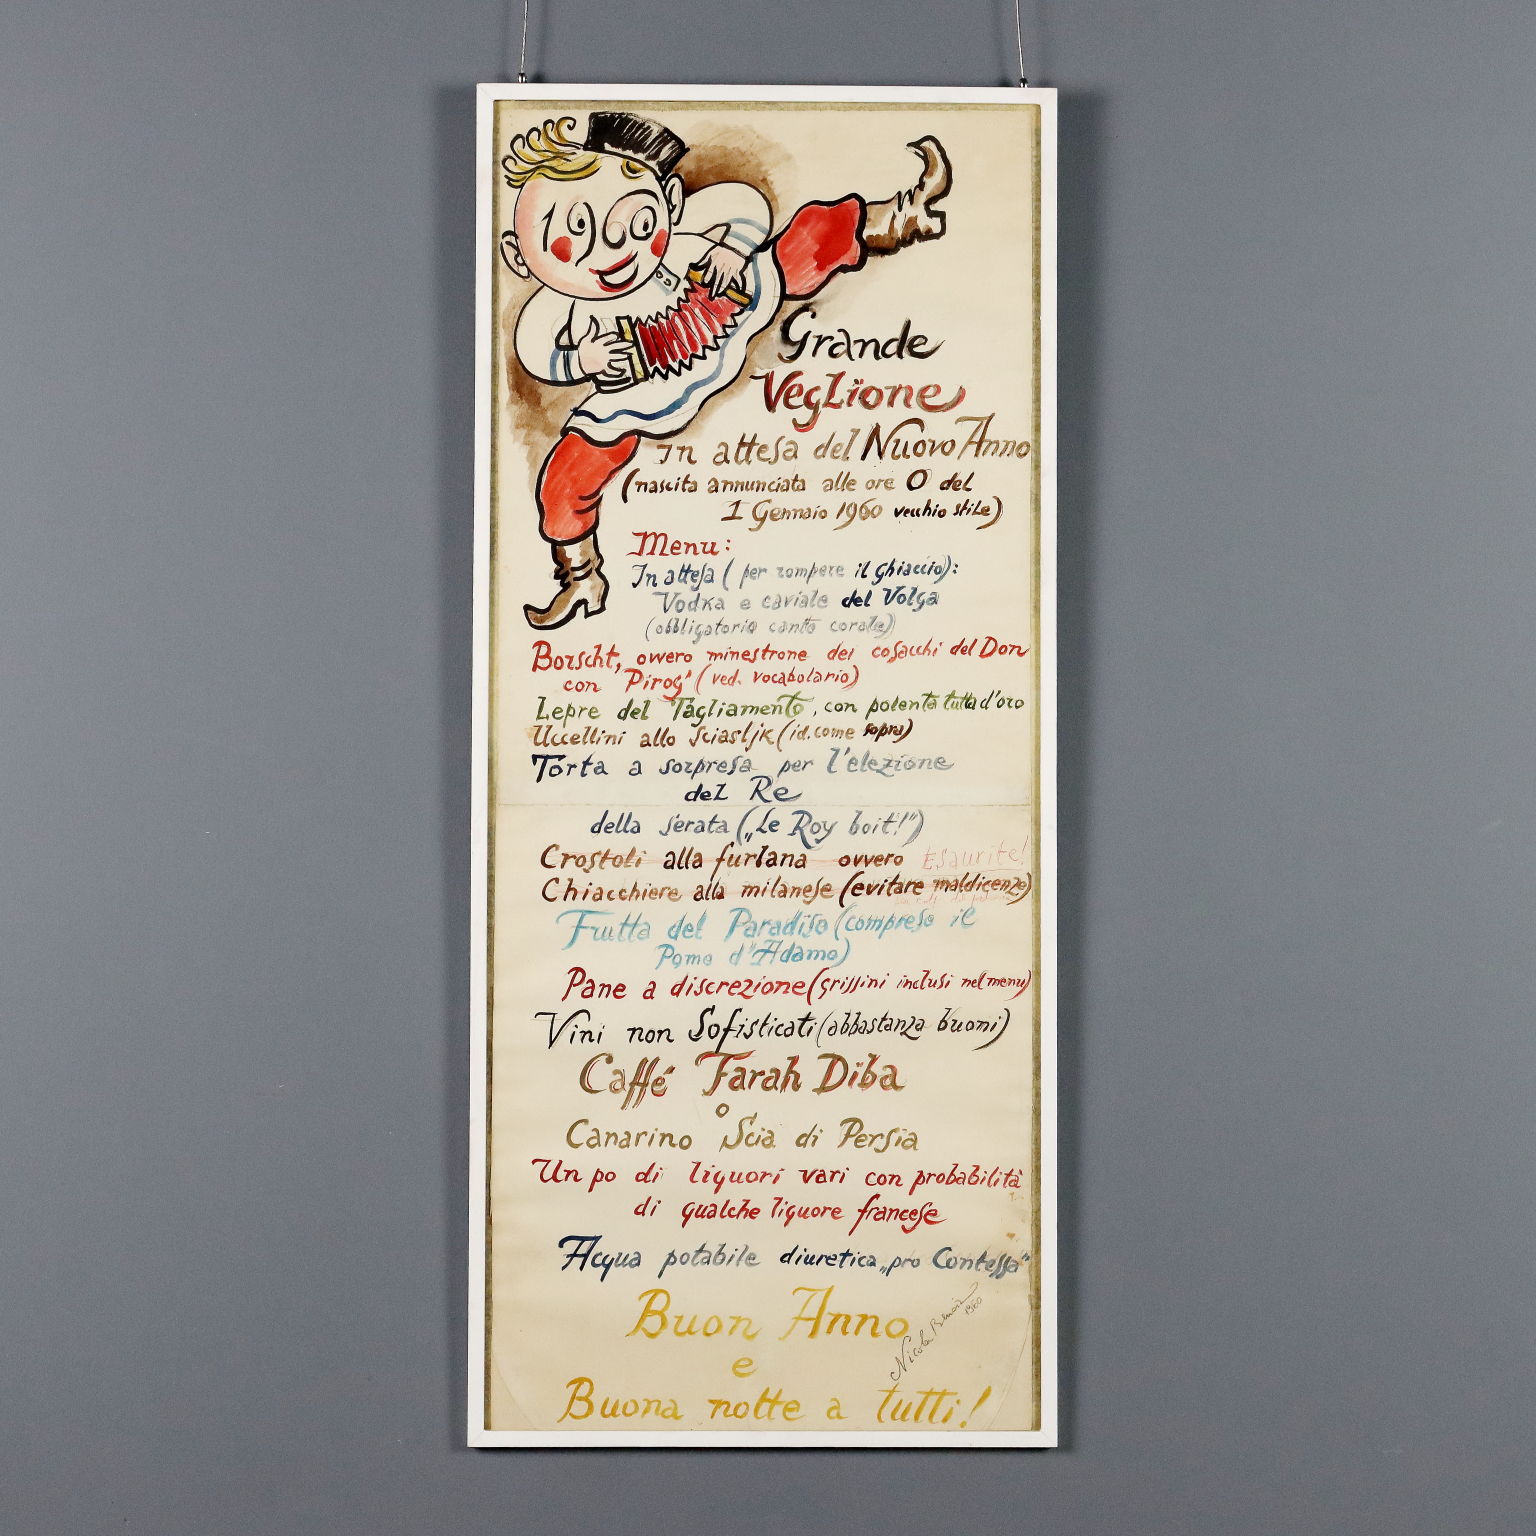 1960
Grande
Veglione
in attesa del Nuovo Anno
(nascita annunciata alle ore 0 del
1 Gennaio 1960 vecchio stile)
Menu:
In attesa (per rompere il ghiaccio):
Vodka e caviale del Volga
(obbligatorio canto corale)
Borscht, ovvero minestrone dei cosacchi del Don
con "Pirog" (ved. vocabolario)
Lepre del Tagliamento, con polenta tutta d'oro
Uccellini allo Sciasljk (id. come sopra)
Torta a sorpresa per l'elezione
del Re
della serata („Le Roy boit!")
Crostoli alla furlana ovvero Esaurite!
Chiacchiere alla milanese (evitare maldicenze)
Frutta del Paradiso (compreso il
Pomo d'Adamo)
Pane a discrezione (grissini inclusi nel menu)
Vini non Sofisticati (abbastanza buoni)
Caffé Farah Diba
o
Canarino Scia di Persia
Un po di liquori vari con probabilità
di qualche liquore francese
Acqua potabile diuretica „pro Contessa"
Buon Anno
e
Buona notte a tutti!
Nicola Benois
1960